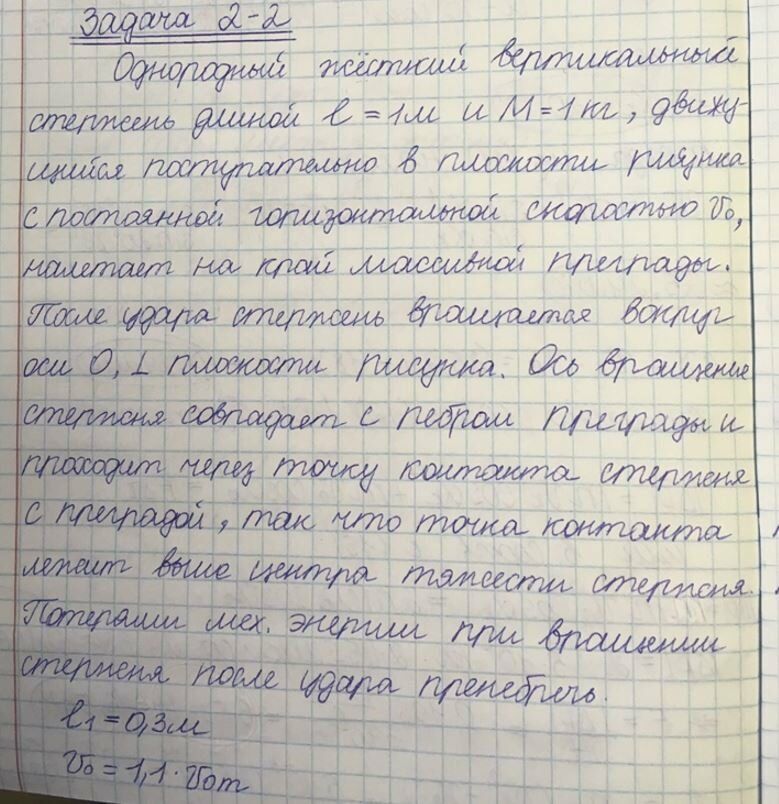 Задача 2-2
Однородный жёсткий вертикальный
стержень длиной l = 1м и M = 1 кг, движу-
щийся поступательно в плоскости рисунка
с постоянной горизонтальной скоростью v₀,
налетает на край массивной преграды.
После удара стержень вращается вокруг
оси O, ⊥ плоскости рисунка. Ось вращения
стержня совпадает с ребром преграды и
проходит через точку контакта стержня
с преградой, так что точка контакта
лежит выше центра тяжести стержня.
Потерями мех. энергии при вращении
стержня после удара пренебречь.
l₁ = 0,3м
v₀ = 1,1 · v₀т